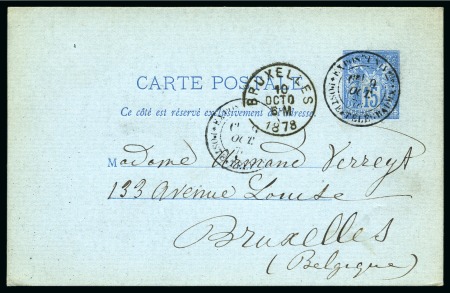 CARTE POSTALE
Ce côté est réservé exclusivement à l'adresse.
BRUXELLES
10
OCTO
1878
15
OCT
Madame Armand Verreyt
133 Avenue Louise
Bruxelles
(Belgique)